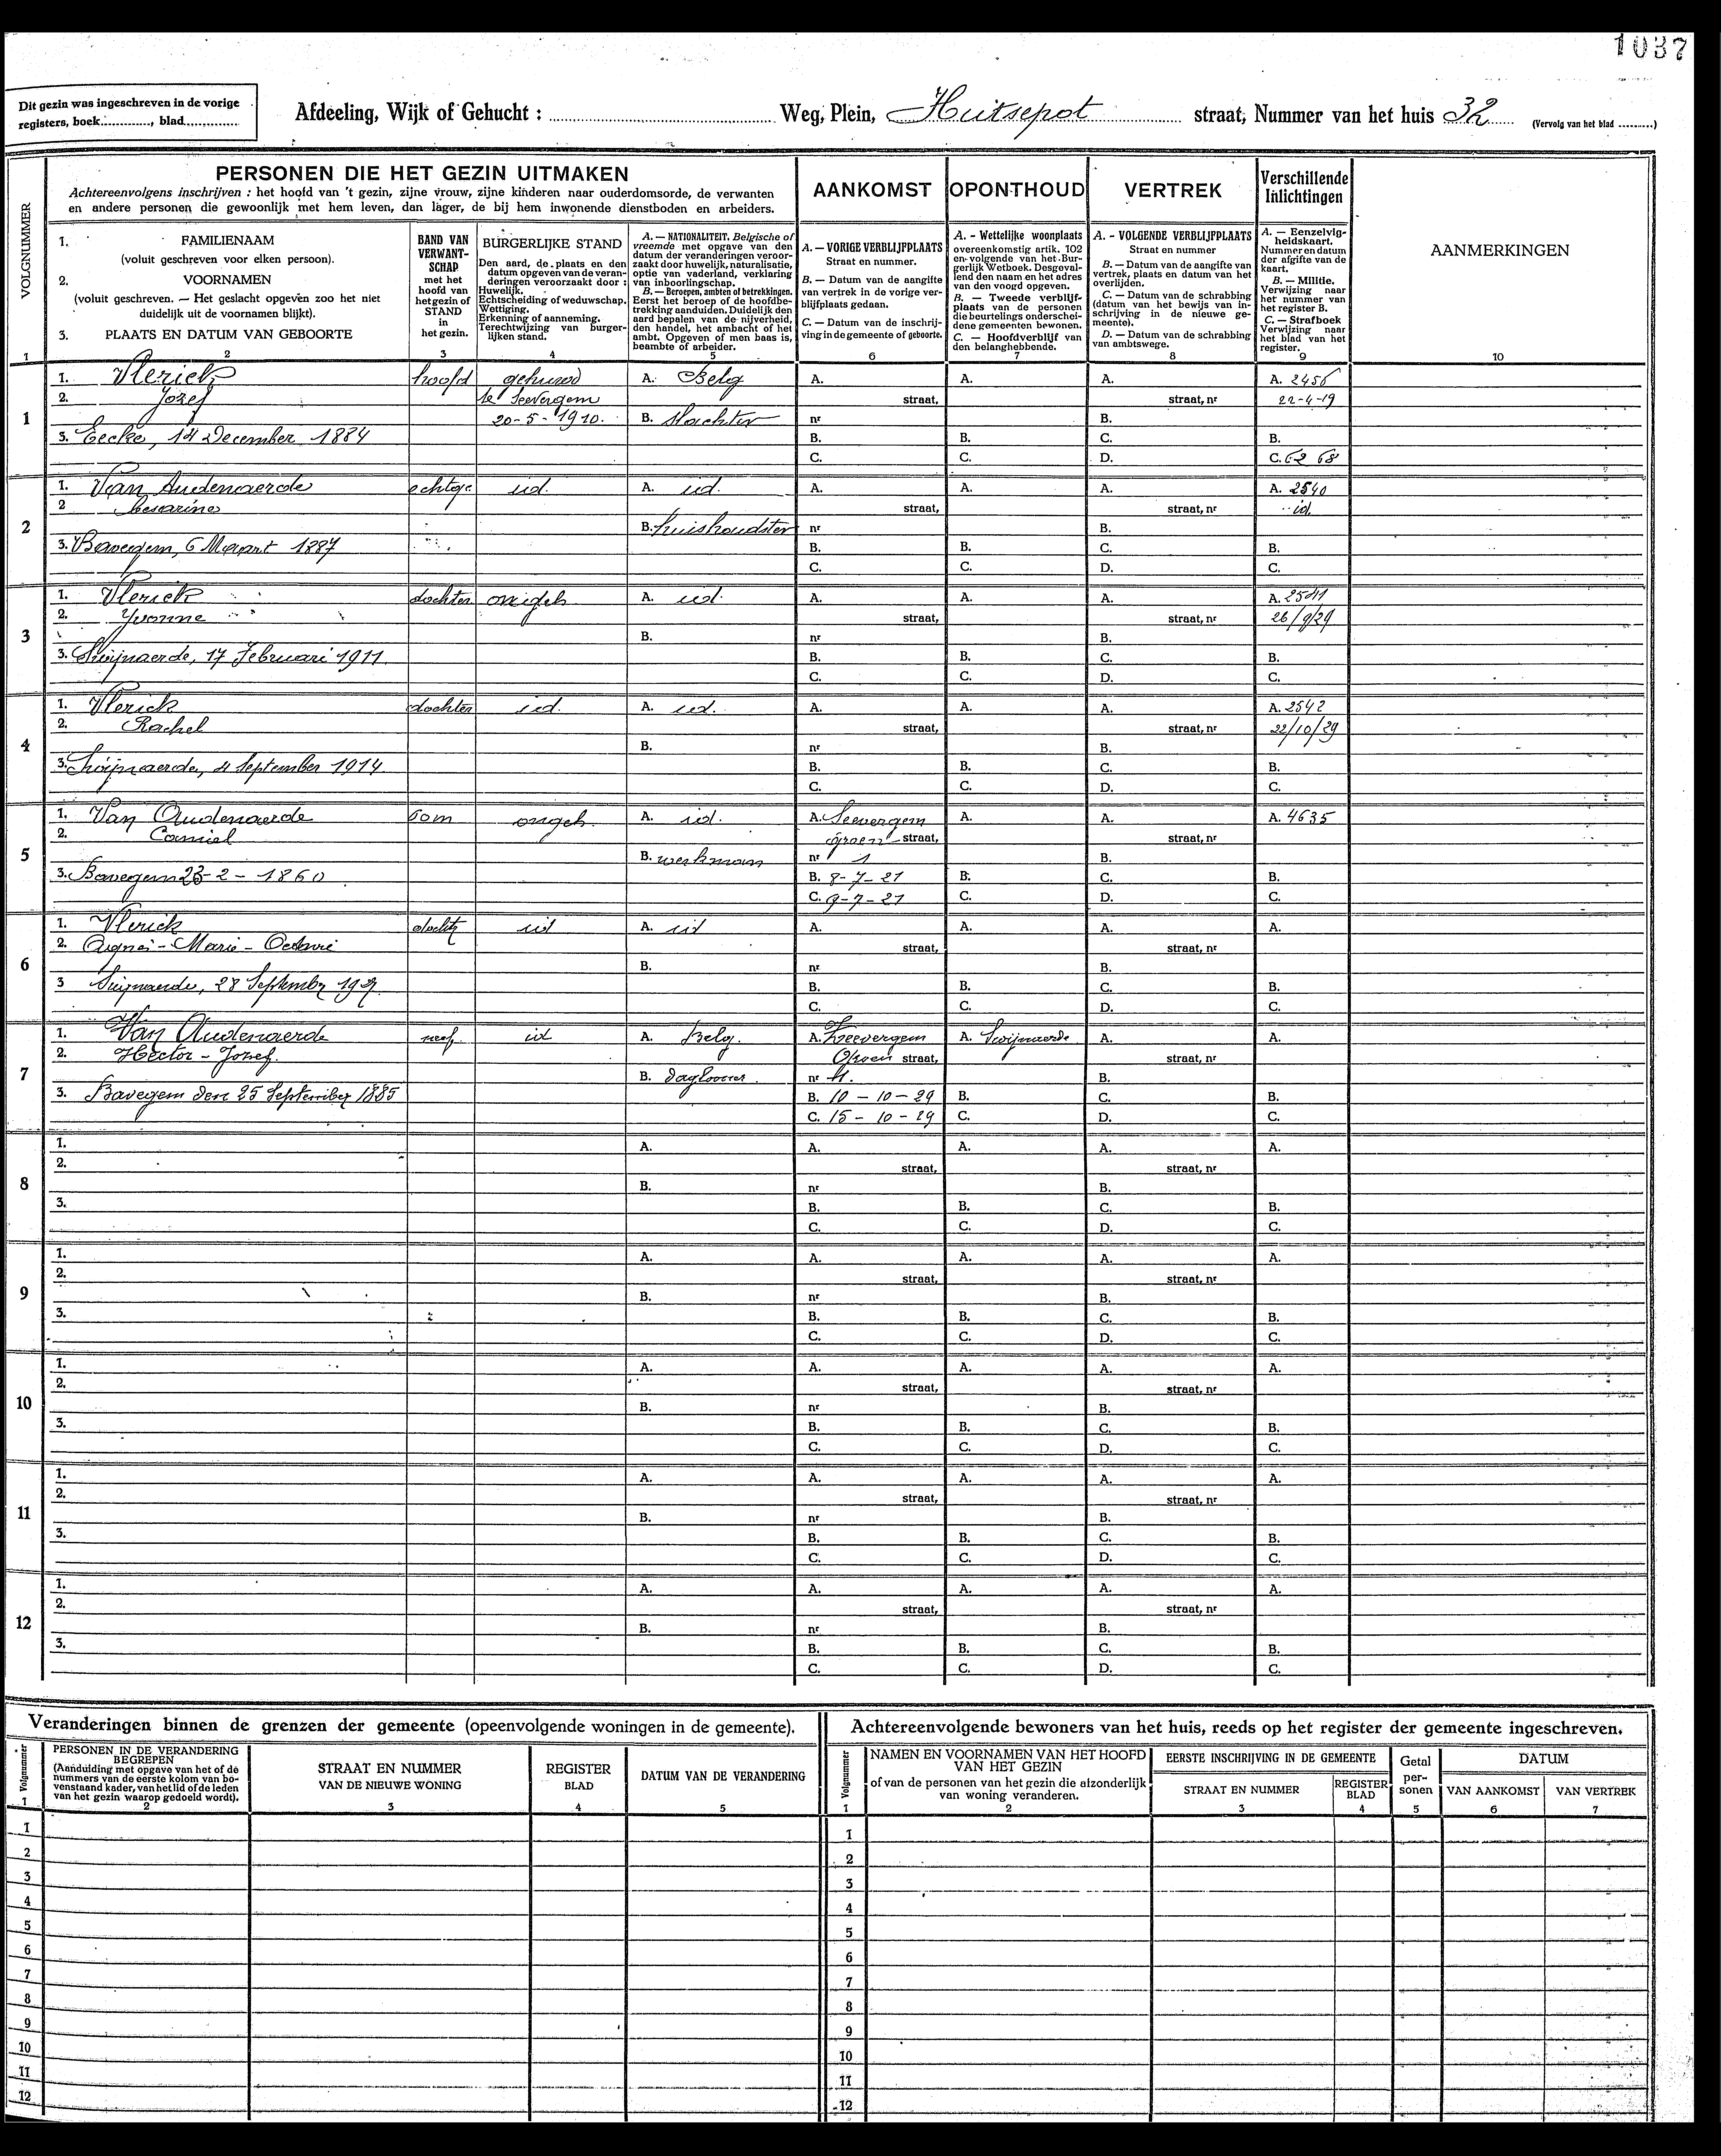 1037
Dit gezin was ingeschreven in de vorige
registers, boek............, blad..............
Afdeeling, Wijk of Gehucht : ........ Weg, Plein, Hutsepot straat, Nummer van het huis 32 (Vervolg van het blad .........)
VOLGNUMMER
PERSONEN DIE HET GEZIN UITMAKEN
Achtereenvolgens inschrijven : het hoofd van 't gezin, zijne vrouw, zijne kinderen naar ouderdomsorde, de verwanten
en andere personen die gewoonlijk met hem leven, dan lager, de bij hem inwonende dienstboden en arbeiders.
AANKOMST
OPONTHOUD
VERTREK
Verschillende
Inlichtingen
1. FAMILIENAAM
(voluit geschreven voor elken persoon).
2. VOORNAMEN
(voluit geschreven. — Het geslacht opgeven zoo het niet
duidelijk uit de voornamen blijkt).
3. PLAATS EN DATUM VAN GEBOORTE
BAND VAN
VERWANT-
SCHAP
met het
hoofd van
het gezin of
STAND
in
het gezin.
BURGERLIJKE STAND
Den aard, de plaats en den
datum opgeven van de veran-
deringen veroorzaakt door :
Huwelijk.
Echtscheiding of weduwschap.
Wettiging.
Erkenning of aanneming.
Terechtwijzing van burger-
lijken stand.
A. — NATIONALITEIT. Belgische of
vreemde met opgave van den
datum der veranderingen veroor-
zaakt door huwelijk, naturalisatie,
optie van vaderland, verklaring
van inboorlingschap.
B. — Beroepen, ambten of betrekkingen.
Eerst het beroep of de hoofdbe-
trekking aanduiden. Duidelijk den
aard bepalen van de nijverheid,
den handel, het ambacht of het
ambt. Opgeven of men baas is,
beambte of arbeider.
A. — VORIGE VERBLIJFPLAATS
Straat en nummer.
B. — Datum van de aangifte
van vertrek in de vorige ver-
blijfplaats gedaan.
C. — Datum van de inschrij-
ving in de gemeente of geboorte.
A. - Wettelijke woonplaats
overeenkomstig artik. 102
en volgende van het Bur-
gerlijk Wetboek. Desgeval-
lend den naam en het adres
van den voogd opgeven.
B. — Tweede verblijf-
plaats van de personen
die beurtelings onderschei-
dene gemeenten bewonen.
C. — Hoofdverblijf van
den belanghebbende.
A. - VOLGENDE VERBLIJFPLAATS
Straat en nummer
B. — Datum van de aangifte van
vertrek, plaats en datum van het
overlijden.
C. — Datum van de schrabbing
(datum van het bewijs van in-
schrijving in de nieuwe ge-
meente).
D. — Datum van de schrabbing
van ambtswege.
A. — Eenzelvig-
heidskaart.
Nummer en datum
der afgifte van de
kaart.
B. — Militie.
Verwijzing naar
het nummer van
het register B.
C. — Strafboek
Verwijzing naar
het blad van het
register.
AANMERKINGEN
1 2 3 4 5 6 7 8 9 10
1. Vlerick hoofd gehuwd A. Belg A. A. A. A. 2456
2. Jozef te Seevergem straat, straat, nr 22-4-19
1 20-5-1910. B. slachter nr B.
3. Eecke, 14 December 1884 B. B. C. B.
C. C. D. C. 62 68
1. Van Audenaerde echtge id. A. id. A. A. A. A. 2540
2 Cesarine straat, straat, nr id.
2 B. huishoudster nr B.
3. Bavegem, 6 Maart 1887 B. B. C. B.
C. C. D. C.
1. Vlerick dochter ongeh A. id. A. A. A. A. 2541
2. Yvonne straat, straat, nr 26/9/29
3 B. nr B.
3. Swijnaerde, 17 Februari 1911 B. B. C. B.
C. C. D. C.
1. Vlerick dochter id. A. id. A. A. A. A. 2542
2. Rachel straat, straat, nr 22/10/29
4 B. nr B.
3. Swijnaerde, 4 September 1914 B. B. C. B.
C. C. D. C.
1. Van Oudenaerde oom ongeh. A. id. A. Seevergem A. A. A. 4635
2. Camiel Groen straat, straat, nr
5 B. werkman nr 1 B.
3. Bavegem 23-2-1860 B. 8-7-21 B. C. B.
C. 9-7-21 C. D. C.
1. Vlerick id A. id A. A. A. A.
2. Marie straat, straat, nr
6 B. nr B.
3 Swijnaerde, 28 September B. B. C. B.
C. C. D. C.
1. Van Audenaerde neef id A. Belg. A. Zeevergem A. Swijnaerde A. A.
2. Hector - Jozef. straat, straat, nr
7 B. daglooner nr B.
3. Bavegem den 25 September 1885 B. 10-10-29 B. C. B.
C. 15-10-29 C. D. C.
1. A. A. A. A. A.
2. straat, straat, nr
8 B. nr B.
3. B. B. C. B.
C. C. D. C.
1. A. A. A. A. A.
2. straat, straat, nr
9 B. nr B.
3. B. B. C. B.
C. C. D. C.
1. A. A. A. A. A.
2. straat, straat, nr
10 B. nr B.
3. B. B. C. B.
C. C. D. C.
1. A. A. A. A. A.
2. straat, straat, nr
11 B. nr B.
3. B. B. C. B.
C. C. D. C.
1. A. A. A. A. A.
2. straat, straat, nr
12 B. nr B.
3. B. B. C. B.
C. C. D. C.
Veranderingen binnen de grenzen der gemeente (opeenvolgende woningen in de gemeente).
Volgnummer
PERSONEN IN DE VERANDERING
BEGREPEN
(Aanduiding met opgave van het of de
nummers van de eerste kolom van bo-
venstaand kader, van het lid of de leden
van het gezin waarop gedoeld wordt).
STRAAT EN NUMMER
VAN DE NIEUWE WONING
REGISTER
BLAD
DATUM VAN DE VERANDERING
1 2 3 4 5
1
2
3
4
5
6
7
8
9
10
11
12
Achtereenvolgende bewoners van het huis, reeds op het register der gemeente ingeschreven.
Volgnummer
NAMEN EN VOORNAMEN VAN HET HOOFD
VAN HET GEZIN
of van de personen van het gezin die afzonderlijk
van woning veranderen.
EERSTE INSCHRIJVING IN DE GEMEENTE
STRAAT EN NUMMER
REGISTER
BLAD
Getal
per-
sonen
DATUM
VAN AANKOMST
VAN VERTREK
1 2 3 4 5 6 7
1
2
3
4
5
6
7
8
9
10
11
12